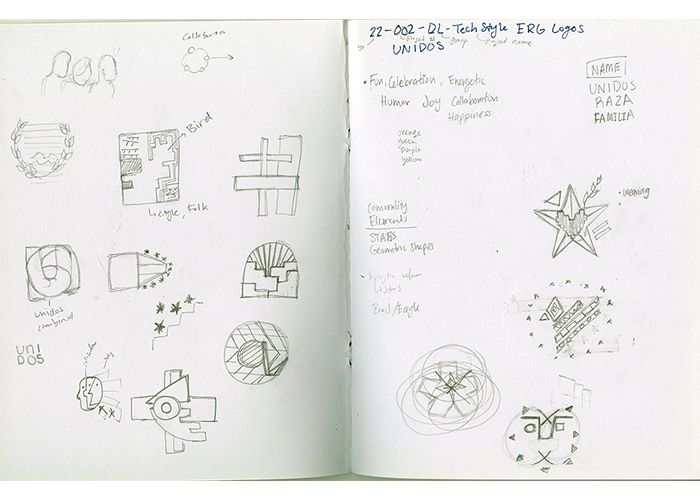 Collaboration
Bird
Eagle, Folk
Unidos
combined
UNI
DOS
22-002-DL-TechStyle ERG Logos
Project name
UNIDOS
• Fun, Celebration, Energetic
Humor Joy Collaboration
Happiness
orange
green
purple
yellow
NAME
UNIDOS
RAZA
FAMILIA
Elements
STARS
Geometric Shapes
Bird/Eagle
• weaving